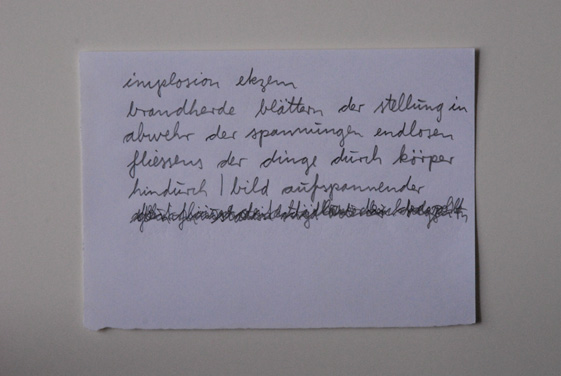 implosion ekzem
brandherde blättern der stellung in
abwehr der spannungen endlosen
fliessens der dinge durch körper
hindurch | bild aufspannender